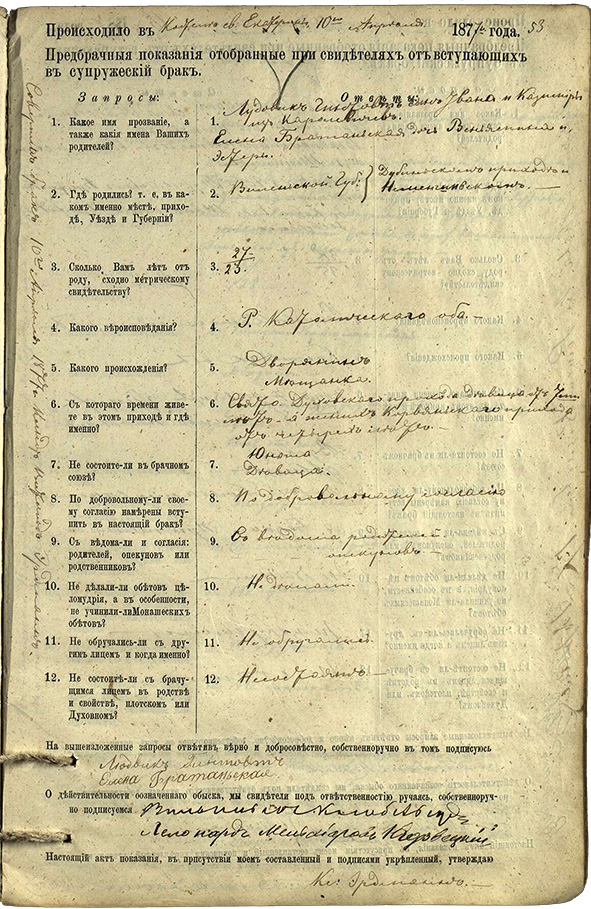 Происходило въ Костелѣ св. Екатерины 10го Апрѣля 1877 года. 53
Предбрачныя показанія отобранные при свидѣтеляхъ отъ вступающихъ
въ супружескій бракъ.
Запросы:
Отвѣты:
1. Какое имя прозваніе, а
также какія имена Вашихъ
родителей?
1. Лудовикъ сынъ Ивана и Казиміры
изъ
Елена Братаньская дочь Веніямина и
Эстеры.
2. Гдѣ родились? т. е. въ ка-
комъ именно мѣстѣ, прихо-
дѣ, Уѣздѣ и Губерніи?
2. Виленьской Губ. Дубиньскомъ приходѣ и
Неменчиньскомъ.
3. Сколько Вамъ лѣтъ отъ
роду, сходно метрическому
свидѣтельству?
3. 27
23.
4. Какого вѣроисповѣданія?
4. Р. Католическаго оба.
5. Какого происхожденія?
5. Дворянинъ
Мѣщанка.
6. Съ котораго времени живе-
те въ этомъ приходѣ и гдѣ
именно?
6. Свято Духовского прихода дѣвица отъ
лѣтъ а женихъ прихода
отъ четырехъ лѣтъ
7. Не состоите-ли въ брачномъ
союзѣ?
7. Юноша
Дѣвица.
8. По добровольному-ли свое-
му согласію намѣрены всту-
пить въ настоящій бракъ?
8. По добровольному согласію
9. Съ вѣдома-ли и согласія:
родителей, опекуновъ или
родственниковъ?
9. Съ вѣдома родителей
опекуновъ
10. Не дѣлали-ли обѣтовъ цѣ-
ломудрія, а въ особенности,
не учинили-лиМонашескихъ
обѣтовъ?
10. Не дѣлали.
11. Не обручались-ли съ дру-
гимъ лицемъ и когда именно?
11. Не обручались.
12. Не состоите-ли съ брачу-
щимся лицемъ въ родствѣ
и свойствѣ, плотскомъ или
Духовномъ?
12. Несостоятъ
На вышеизложенные запросы отвѣтивъ вѣрно и добросовѣстно, собственноручно въ томъ подписуюсь
Людвикъ
Елена Братаньская
О дѣйствительности означеннаго обыска, мы свидѣтели подъ отвѣтственностію ручаясь, собственноруч-
но подписуемся
Настоящій актъ показанія, въ присутствіи моемъ составленный и подписями укрѣпленный, утверждаю
Кс. Эрдманъ.
Совершилъ бракъ 10го Апрѣля 1877 г. Ксендзъ Эрдманъ.